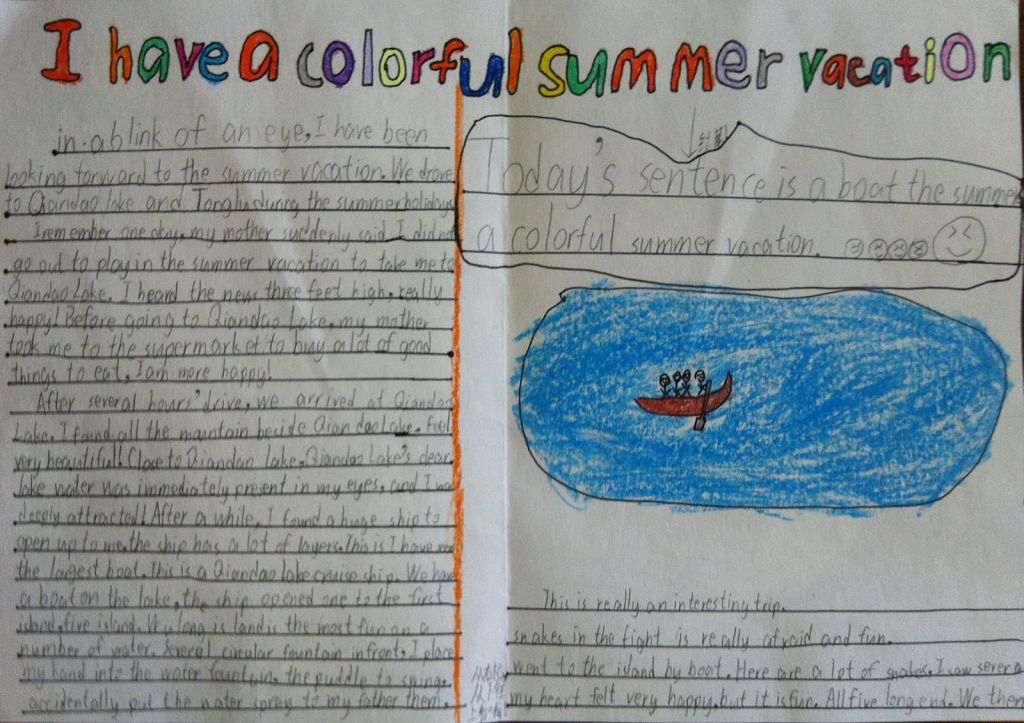 I have a colorful summer vacation
in a blink of an eye, I have been
looking forward to the summer vacation. We drove
to Qiandao lake and Tonglu during the summer holidays
I remember one day, my mother suddenly said I didn't
go out to play in the summer vacation to take me to
Qiandao Lake. I heard the news three feet high, really
happy! Before going to Qiandao Lake, my mother
took me to the supermarket to buy a lot of good
things to eat, I am more happy!
After several hours' drive, we arrived at Qiandao
Lake. I found all the mountain beside Qiandao Lake. feel
very beautiful! Close to Qiandao lake, Qiandao Lake's clear
lake water was immediately present in my eyes, and I was
deeply attracted! After a while, I found a huge ship to
open up to me, the ship has a lot of layers. This is I have seen
the largest boat. This is a Qiandao lake cruise ship. We have
a boat on the lake, the ship opened one to the first
island, five island. long island is the most fun on a
number of water. Several circular fountain in front, I place
my hand into the water fountain, the puddle to
accidentally put the water spray to my father them.
Today's sentence is a boat the summer
a colorful summer vacation.
This is really an interesting trip.
snakes in the fight is really afraid and fun.
went to the island by boat. Here are a lot of snakes. I saw severa
my heart felt very happy, but it is fun. All five long end. We then